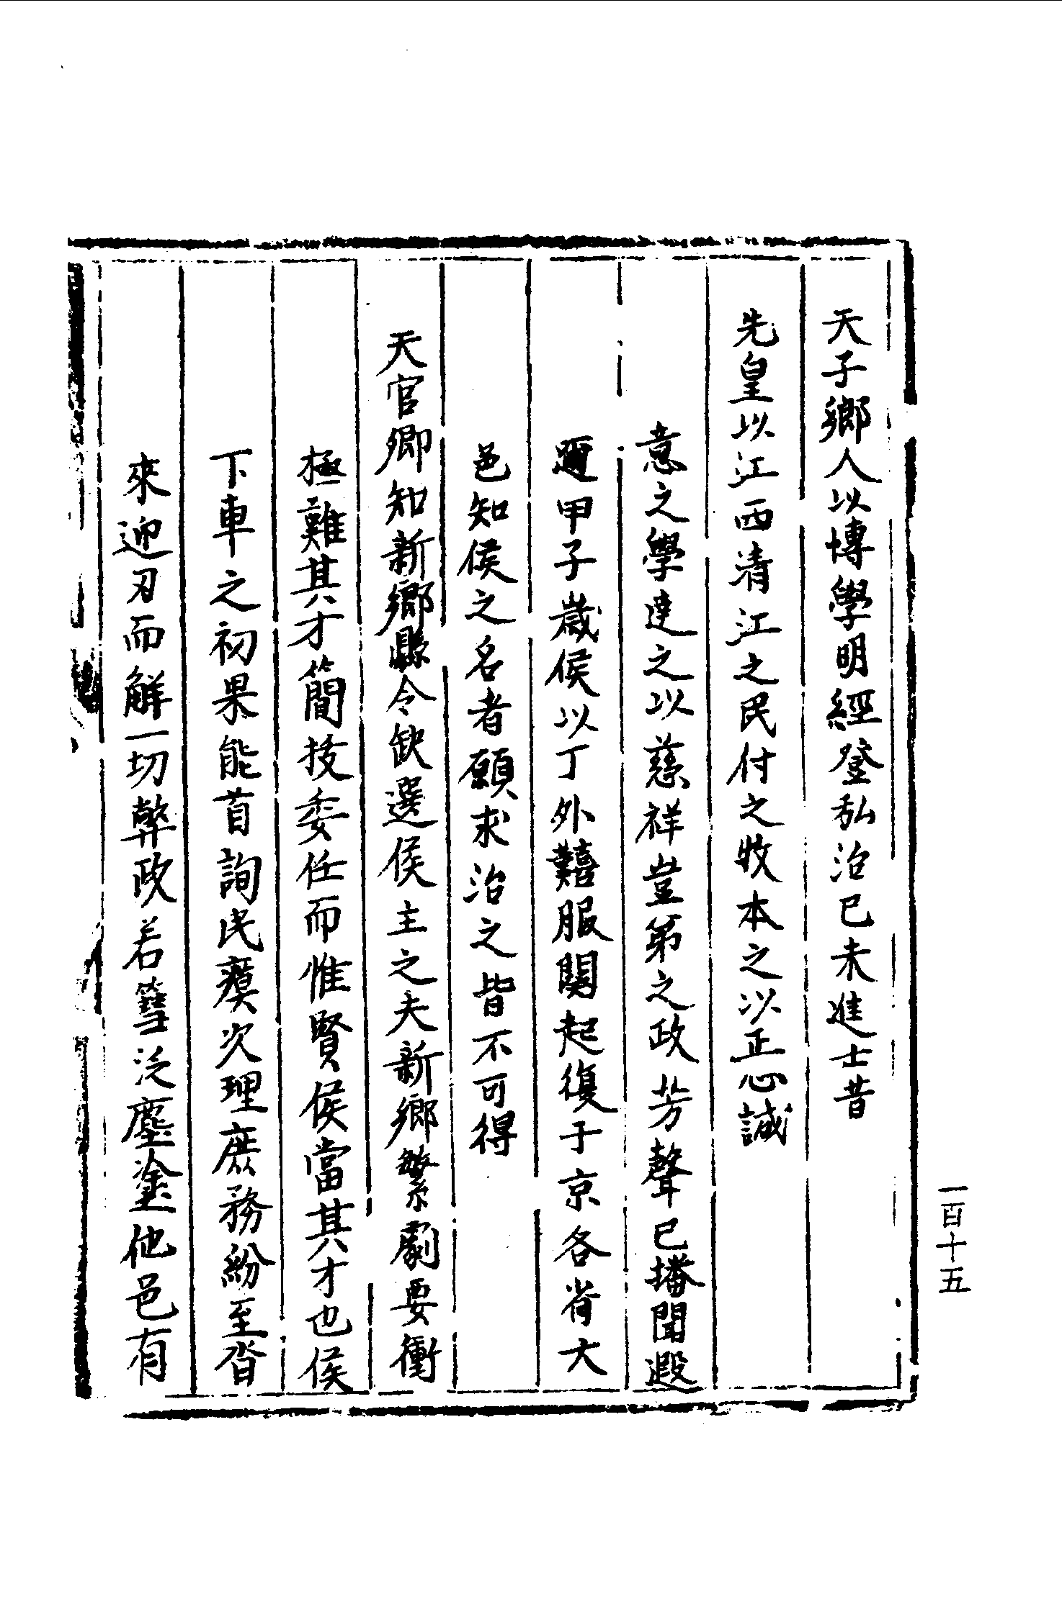 天子鄉人以博學明經登私治已未進士昔
先皇以江西清江之民付之牧本之以正心誠
意之學達之以慈祥豈第之政芳聲已播聞遐
邇甲子歲侯以丁外艱服闋起復于京各省大
邑知侯之名者願求治之皆不可得
天官卿知新鄉縣令缺選侯主之夫新鄉繁劇要衝
極難其才簡技委任而惟賢侯當其才也侯
下車之初果能首詢民瘼次理庶務紛至沓
來迎刃而解一切弊政若篲泛塵塗他邑有
一百十五